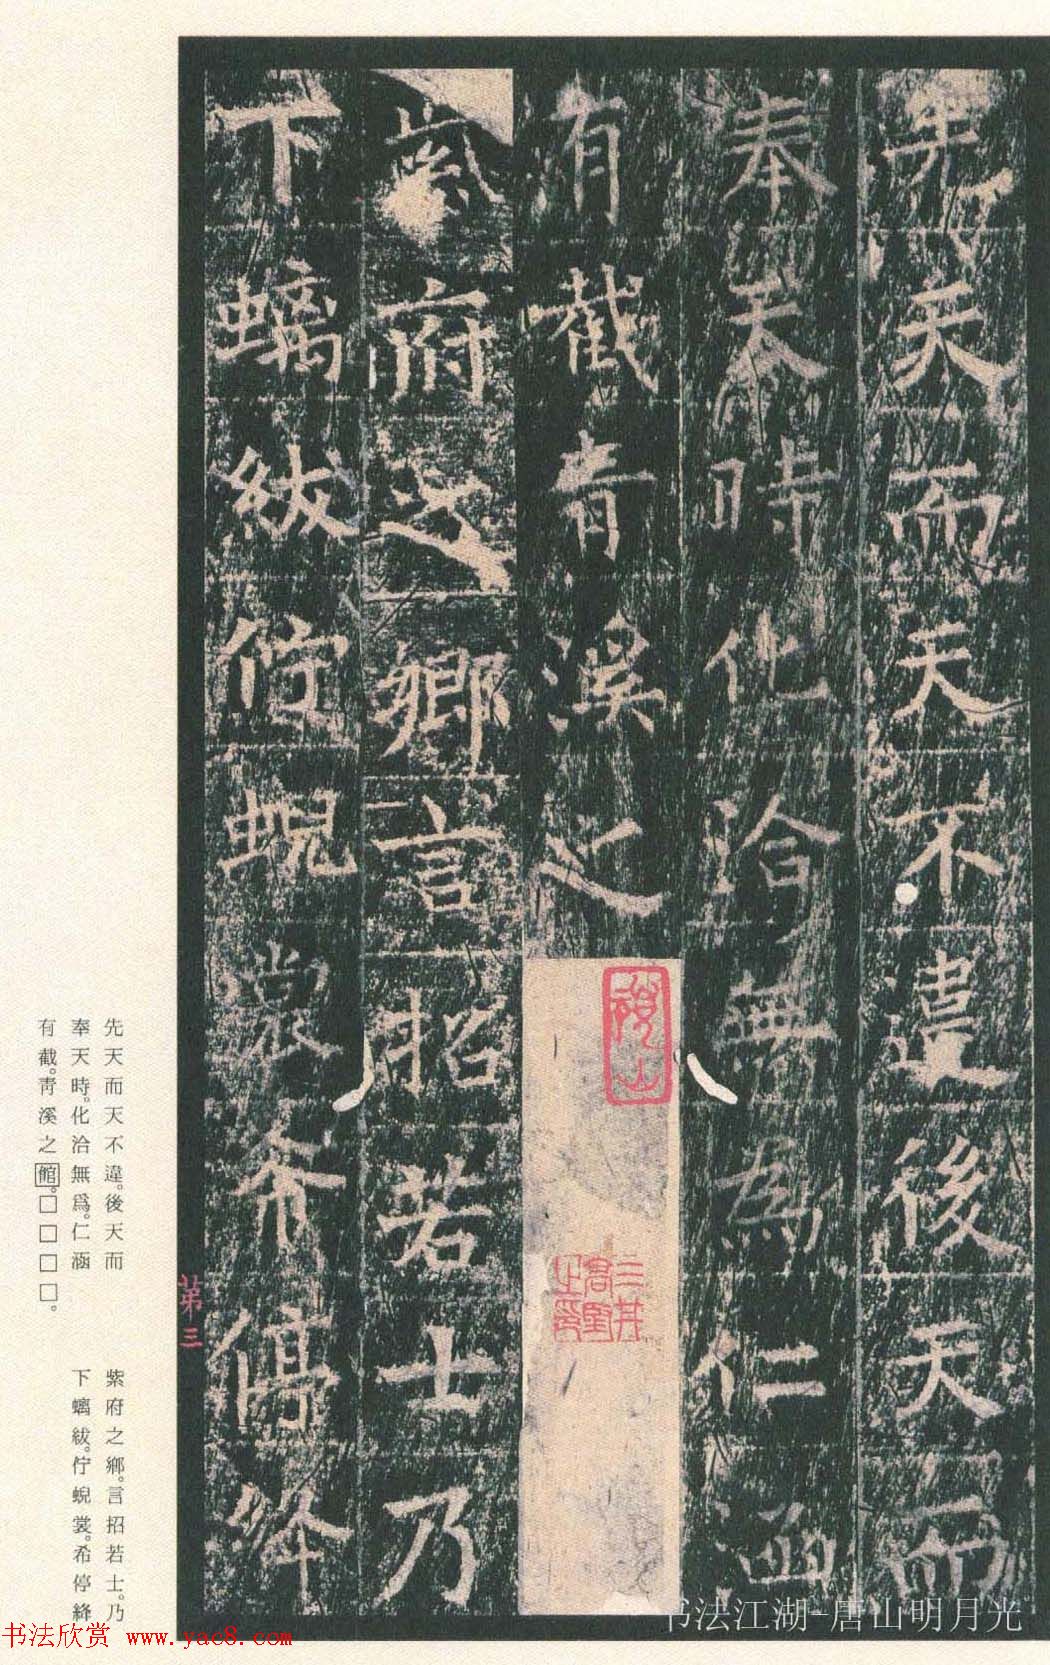 先天而天不違後天而
奉天時化洽無為仁涵
有截青溪之
紫府之鄉言招若士乃
下螭紱佇蜺裳希停絳
三井高堅之印
先天而天不違。後天而
奉天時。化洽無爲。仁涵
有截。青溪之館。□□□□。
紫府之鄉。言招若士。乃
下螭紱。佇蜺裳。希停絳
苐三
书法江湖-唐山明月光
书法欣赏 www.yac8.com